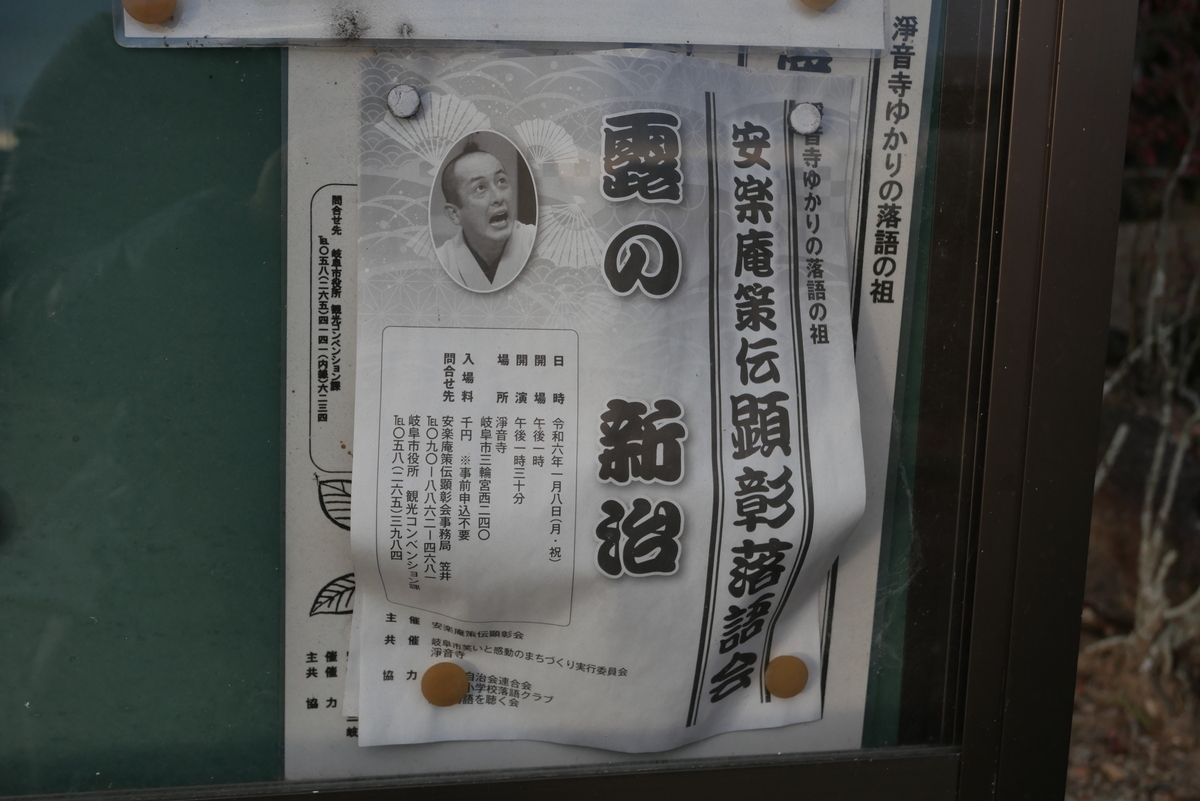 淨音寺ゆかりの落語の祖
音寺ゆかりの落語の祖
安楽庵策伝顕彰落語会
露の新治
日時 令和六年一月八日(月・祝)
開場 午後一時
開演 午後一時三十分
場所 淨音寺
岐阜市三輪宮西二四〇
入場料 千円 ※事前申込不要
問合せ先 安楽庵策伝顕彰会事務局 笠井
℡〇九〇ー八八六二ー四六八一
岐阜市役所 観光コンベンション課
℡〇五八(二六五)三九八四
主催 安楽庵策伝顕彰会
共催 岐阜市笑いと感動のまちづくり実行委員会
淨音寺
協力 自治会連合会
小学校落語クラブ
語を聴く会
問合せ先 岐阜市役所 観光コンベンション課
℡〇五八(二六五)四一四一(内線)六二三四
主催
共催
協力
岐